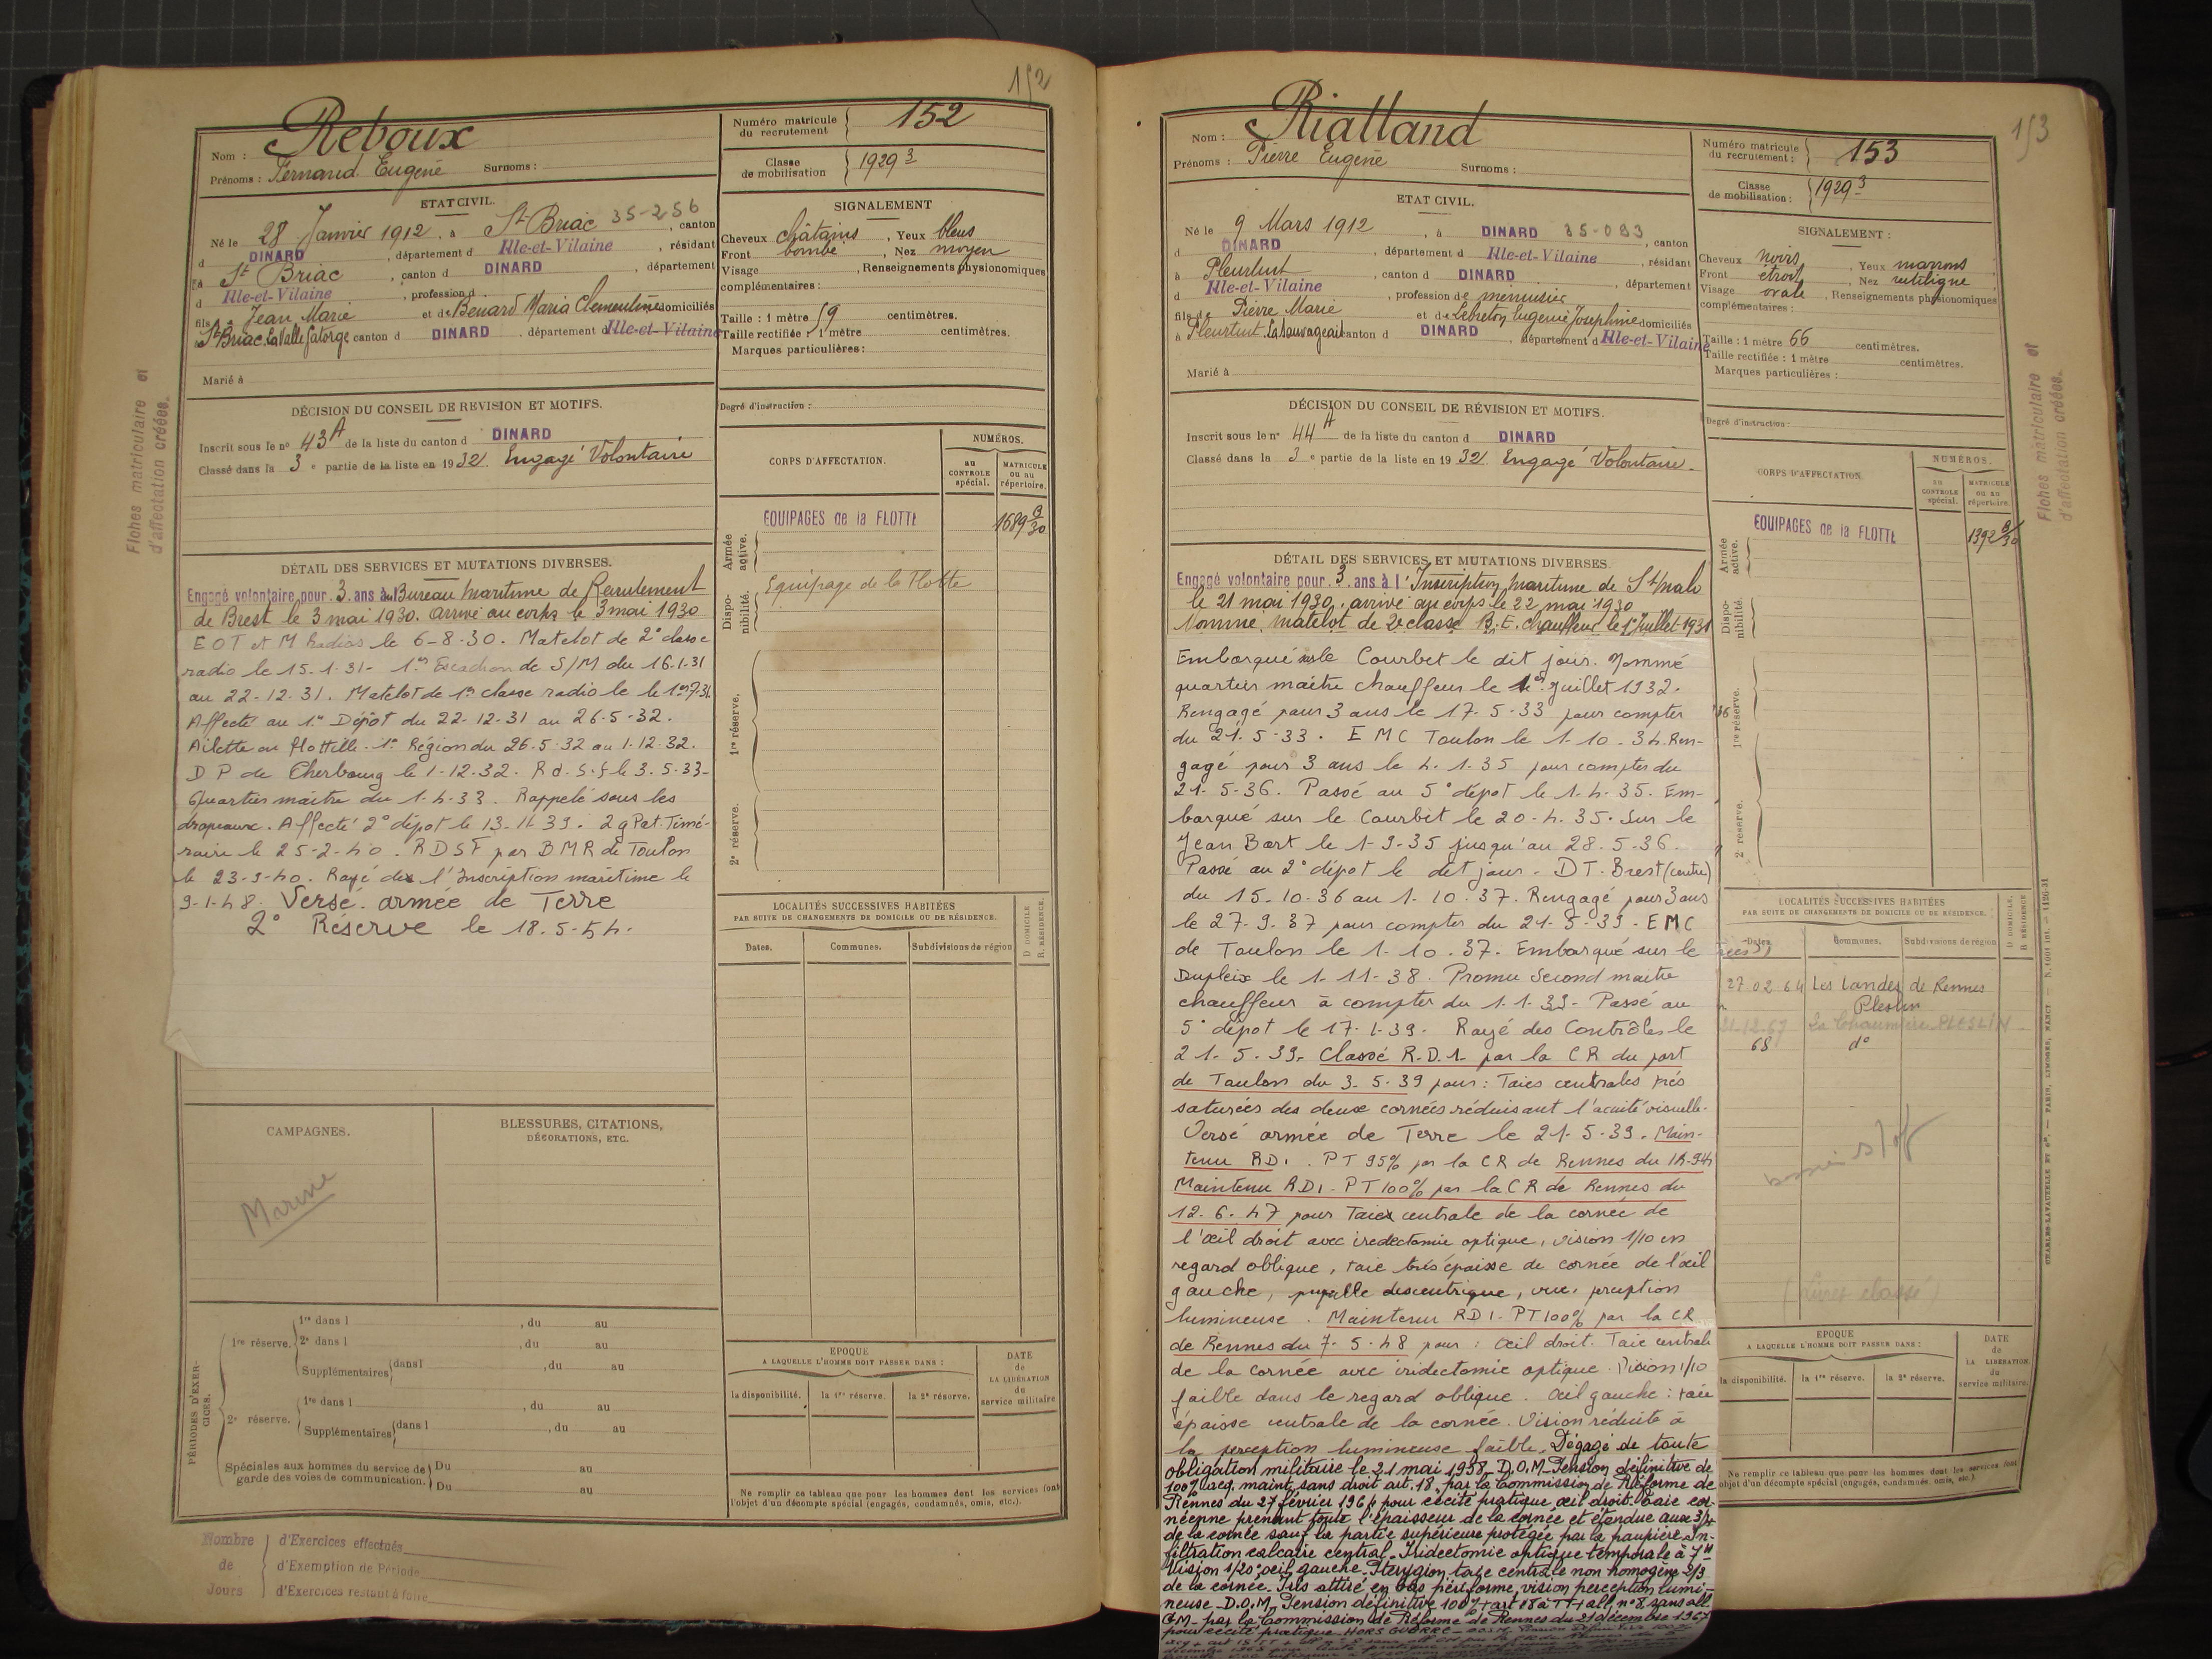 152
Nom : Reboux
Prénoms : Fernand Eugène Surnoms :
Numéro matricule du recrutement 152
Classe de mobilisation 1929 3
ETAT CIVIL.
Né le 28 Janvier 1912, à St Briac 35-256, canton
d DINARD, département d Ille-et-Vilaine, résidant
à St Briac, canton d DINARD, département
d Ille-et-Vilaine, profession d
fils d Jean Marie et de Benard Maria Clementine domiciliés
à St Briac La Valle Gatorge canton d DINARD, département d Ille-et-Vilaine
Marié à
SIGNALEMENT
Cheveux châtains, Yeux bleus
Front bombé, Nez moyen
Visage, Renseignements physionomiques
complémentaires :
Taille : 1 mètre 59 centimètres.
Taille rectifiée : 1 mètre centimètres.
Marques particulières :
Degré d'instruction :
DÉCISION DU CONSEIL DE REVISION ET MOTIFS.
Inscrit sous le n° 43 A de la liste du canton d DINARD
Classé dans la 3e partie de la liste en 1932. Engagé Volontaire
CORPS D'AFFECTATION.
NUMÉROS.
AU CONTROLE spécial.
MATRICULE ou au répertoire.
Armée active.
EQUIPAGES de la FLOTTE
1689 B/30
Dispo-nibilité.
Equipage de la Flotte
1re réserve.
2e réserve.
DÉTAIL DES SERVICES ET MUTATIONS DIVERSES.
Engagé volontaire pour 3 ans au Bureau Maritime de Recrutement
de Brest le 3 mai 1930. arrivé au corps le 3 mai 1930
E O T et M Radios le 6-8-30. Matelot de 2e classe
radio le 15.1.31- 1er Escadron de S/M du 16.1.31
au 22-12-31. Matelot de 1re classe radio le 1er 7.31
Affecté au 1er Dépôt du 22-12-31 au 26-5-32.
Ailette ou flottille 1re Région du 26.5.32 au 1-12-32.
D P de Cherbourg le 1-12.32. Rd.S.f le 3.5.33-
Quartier maître du 1-4-33. Rappelé sous les
drapeaux. Affecté 2° dépot le 13-11-39. 2g Pat. Témé-
raire le 25-2-40. R D S F par B M R de Toulon
le 23-9-40. Rayé de l'Inscription maritime le
9-1-48. Versé armée de Terre
2° Réserve le 18.5-54.
LOCALITÉS SUCCESSIVES HABITÉES
PAR SUITE DE CHANGEMENTS DE DOMICILE OU DE RÉSIDENCE.
Dates. Communes. Subdivisions de région
D DOMICILE. R. RÉSIDENCE.
CAMPAGNES.
BLESSURES, CITATIONS,
DÉCORATIONS, ETC.
Marine
PÉRIODES D'EXER-CICES.
1re réserve. 1re dans l, du au
2e dans l, du au
Supplémentaires dans l, du au
2e réserve. 1re dans l, du au
Supplémentaires dans l, du au
Spéciales aux hommes du service de garde des voies de communication. Du au
Du au
EPOQUE
A LAQUELLE L'HOMME DOIT PASSER DANS :
la disponibilité. la 1re réserve. la 2e réserve.
DATE de LA LIBÉRATION du service militaire
Ne remplir ce tableau que pour les hommes dont les services font
l'objet d'un décompte spécial (engagés, condamnés, omis, etc.).
Nombre de Jours
d'Exercices effectués
d'Exemption de Période
d'Exercices restant à faire
Fiches matriculaire et
d'affectation créées.
153
Nom : Rialland
Prénoms : Pierre Eugène Surnoms :
Numéro matricule du recrutement : 153
Classe de mobilisation : 1929 3
ETAT CIVIL.
Né le 9 Mars 1912, à DINARD 35-093, canton
d DINARD, département d Ille-et-Vilaine, résidant
à Pleurtuit, canton d DINARD, département
d Ille-et-Vilaine, profession de menuisier
fils de Pierre Marie et de Lebreton Eugénie Joséphine domiciliés
à Pleurtuit La Sauvageais canton d DINARD, département d Ille-et-Vilaine
Marié à
SIGNALEMENT :
Cheveux noirs, Yeux marrons
Front étroit, Nez rectiligne
Visage ovale, Renseignements physionomiques
complémentaires :
Taille : 1 mètre 66 centimètres.
Taille rectifiée : 1 mètre centimètres.
Marques particulières :
Degré d'instruction :
DÉCISION DU CONSEIL DE RÉVISION ET MOTIFS.
Inscrit sous le n° 44 A de la liste du canton d DINARD
Classé dans la 3e partie de la liste en 1932. Engagé Volontaire
CORPS D'AFFECTATION
NUMÉROS.
AU CONTROLE spécial.
MATRICULE ou au répertoire.
Armée active.
EQUIPAGES de la FLOTTE
1392 B/30
Dispo-nibilité.
1re réserve.
2e réserve.
DÉTAIL DES SERVICES ET MUTATIONS DIVERSES.
Engagé volontaire pour 3 ans à l'Inscription Maritime de St Malo
le 21 mai 1930, arrivé au corps le 22 mai 1930
Nommé matelot de 2e classe B. E. chauffeur le 1er Juillet 1931
Embarqué sur le Courbet le dit jour. Nommé
quartier maître chauffeur le 1er juillet 1932.
Rengagé pour 3 ans le 17.5-33 pour compter
du 21.5-33. E M C Toulon le 1-10-34. Ren-
gagé pour 3 ans le 4.1.35 pour compter du
21-5-36. Passé au 5° dépot le 1-4-35. Em-
barqué sur le Courbet le 20-4.35. Sur le
Jean Bart le 1-9-35 jusqu'au 28.5-36.
Passé au 2° dépot le dit jour. D T. Brest (centre)
du 15.10.36 au 1-10-37. Rengagé pour 3 ans
le 27.9.37 pour compter du 21-5-39. E M C
de Toulon le 1-10.37. Embarqué sur le
Dupleix le 1-11-38. Promu Second maître
chauffeur à compter du 1.1.39- Passé au
5° dépot le 17-1-39. Rayé des Contrôles le
21-5.39. Classé R.D.1. par la CR du port
de Toulon du 3-5-39 pour : Taies centrales très
saturées des deux cornées réduisant l'acuité visuelle.
Versé armée de Terre le 21-5-39. Main-
tenu RD1. PT 95% par la CR de Rennes du
Maintenu RD1 - PT 100% par la CR de Rennes du
12.6.47 pour Taie centrale de la cornée de
l'œil droit avec iredectomie optique, vision 1/10 en
regard oblique, taie très épaisse de cornée de l'œil
gauche, pupille descentrique, vue, perception
lumineuse. Maintenu RD1 - PT 100% par la CR
de Rennes du 7-5-48 pour : Œil droit. Taie centrale
de la cornée avec iridectomie optique. Vision 1/10
faible dans le regard oblique. Œil gauche : taie
épaisse centrale de la cornée. Vision réduite à
la perception lumineuse faible. Dégagé de toute
obligation militaire le 21 mai 1958. D.O.M. Pension définitive de
100% acq. maint. sans droit art. 18, par la Commission de Réforme de
Rennes du 27 février 1964 pour cécité pratique œil droit. Taie cor-
néenne prenant toute l'épaisseur de la cornée et étendue aux 3/4
de la cornée sauf la partie supérieure protégée par la paupière. In-
filtration calcaire central. Iridectomie optique temporale à 7H
Vision 1/20° œil gauche. Pterygion taie centrale non homogène 2/3
de la cornée. Iris attiré en bas périforme, vision perception lumi-
neuse. D.O.M. Pension définitive 100% + art 18 à TT + all. n°8 sans all
G.M. par la Commission de Réforme de Rennes du 21 décembre 1967
pour cécité pratique HORS GUERRE
LOCALITÉS SUCCESSIVES HABITÉES
PAR SUITE DE CHANGEMENTS DE DOMICILE OU DE RÉSIDENCE.
Dates. Communes. Subdivisions de région
D DOMICILE. R RÉSIDENCE
27 02 64 Les Landes de Rennes
Pleslin
21.12.67 La Chaumière PLESLIN
68 d°
EPOQUE
A LAQUELLE L'HOMME DOIT PASSER DANS :
la disponibilité. la 1re réserve. la 2e réserve.
DATE de LA LIBÉRATION du service militaire.
Ne remplir ce tableau que pour les hommes dont les services font
objet d'un décompte spécial (engagés, condamnés, omis, etc.).
Fiches matriculaire et
d'affectation créées.
CHARLES-LAVAUZELLE ET Cie. — PARIS, LIMOGES, NANCY